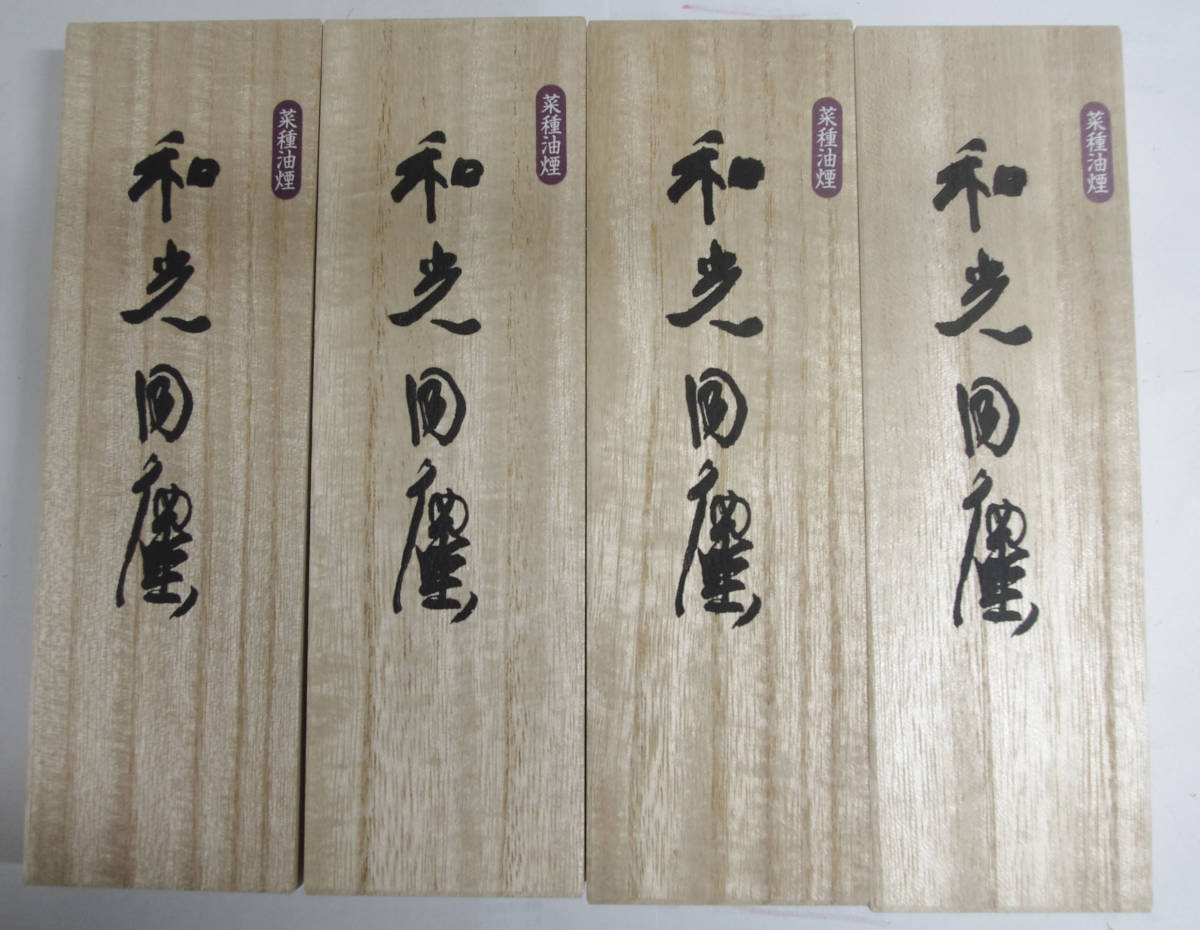 菜種油煙
和光同塵
菜種油煙
和光同塵
菜種油煙
和光同塵
菜種油煙
和光同塵